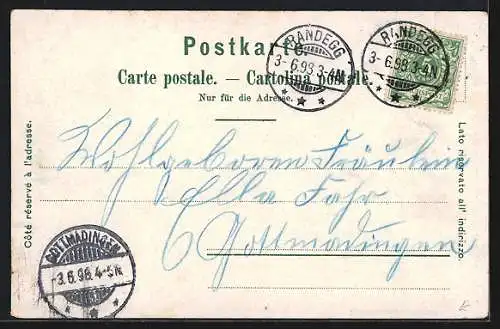 Postkarte.
Carte postale. — Cartolina postale.
Nur für die Adresse.
RANDEGG
3-6.98.3-4N
RANDEGG
3-6.98.3-4N
5
Côté réservé à l'adresse.
Lato riservato all' indirizzo.
Wohlgeboren Fräulein
Ella Fahr
Gottmadingen
GOTTMADINGEN
3.6.98.4-5N